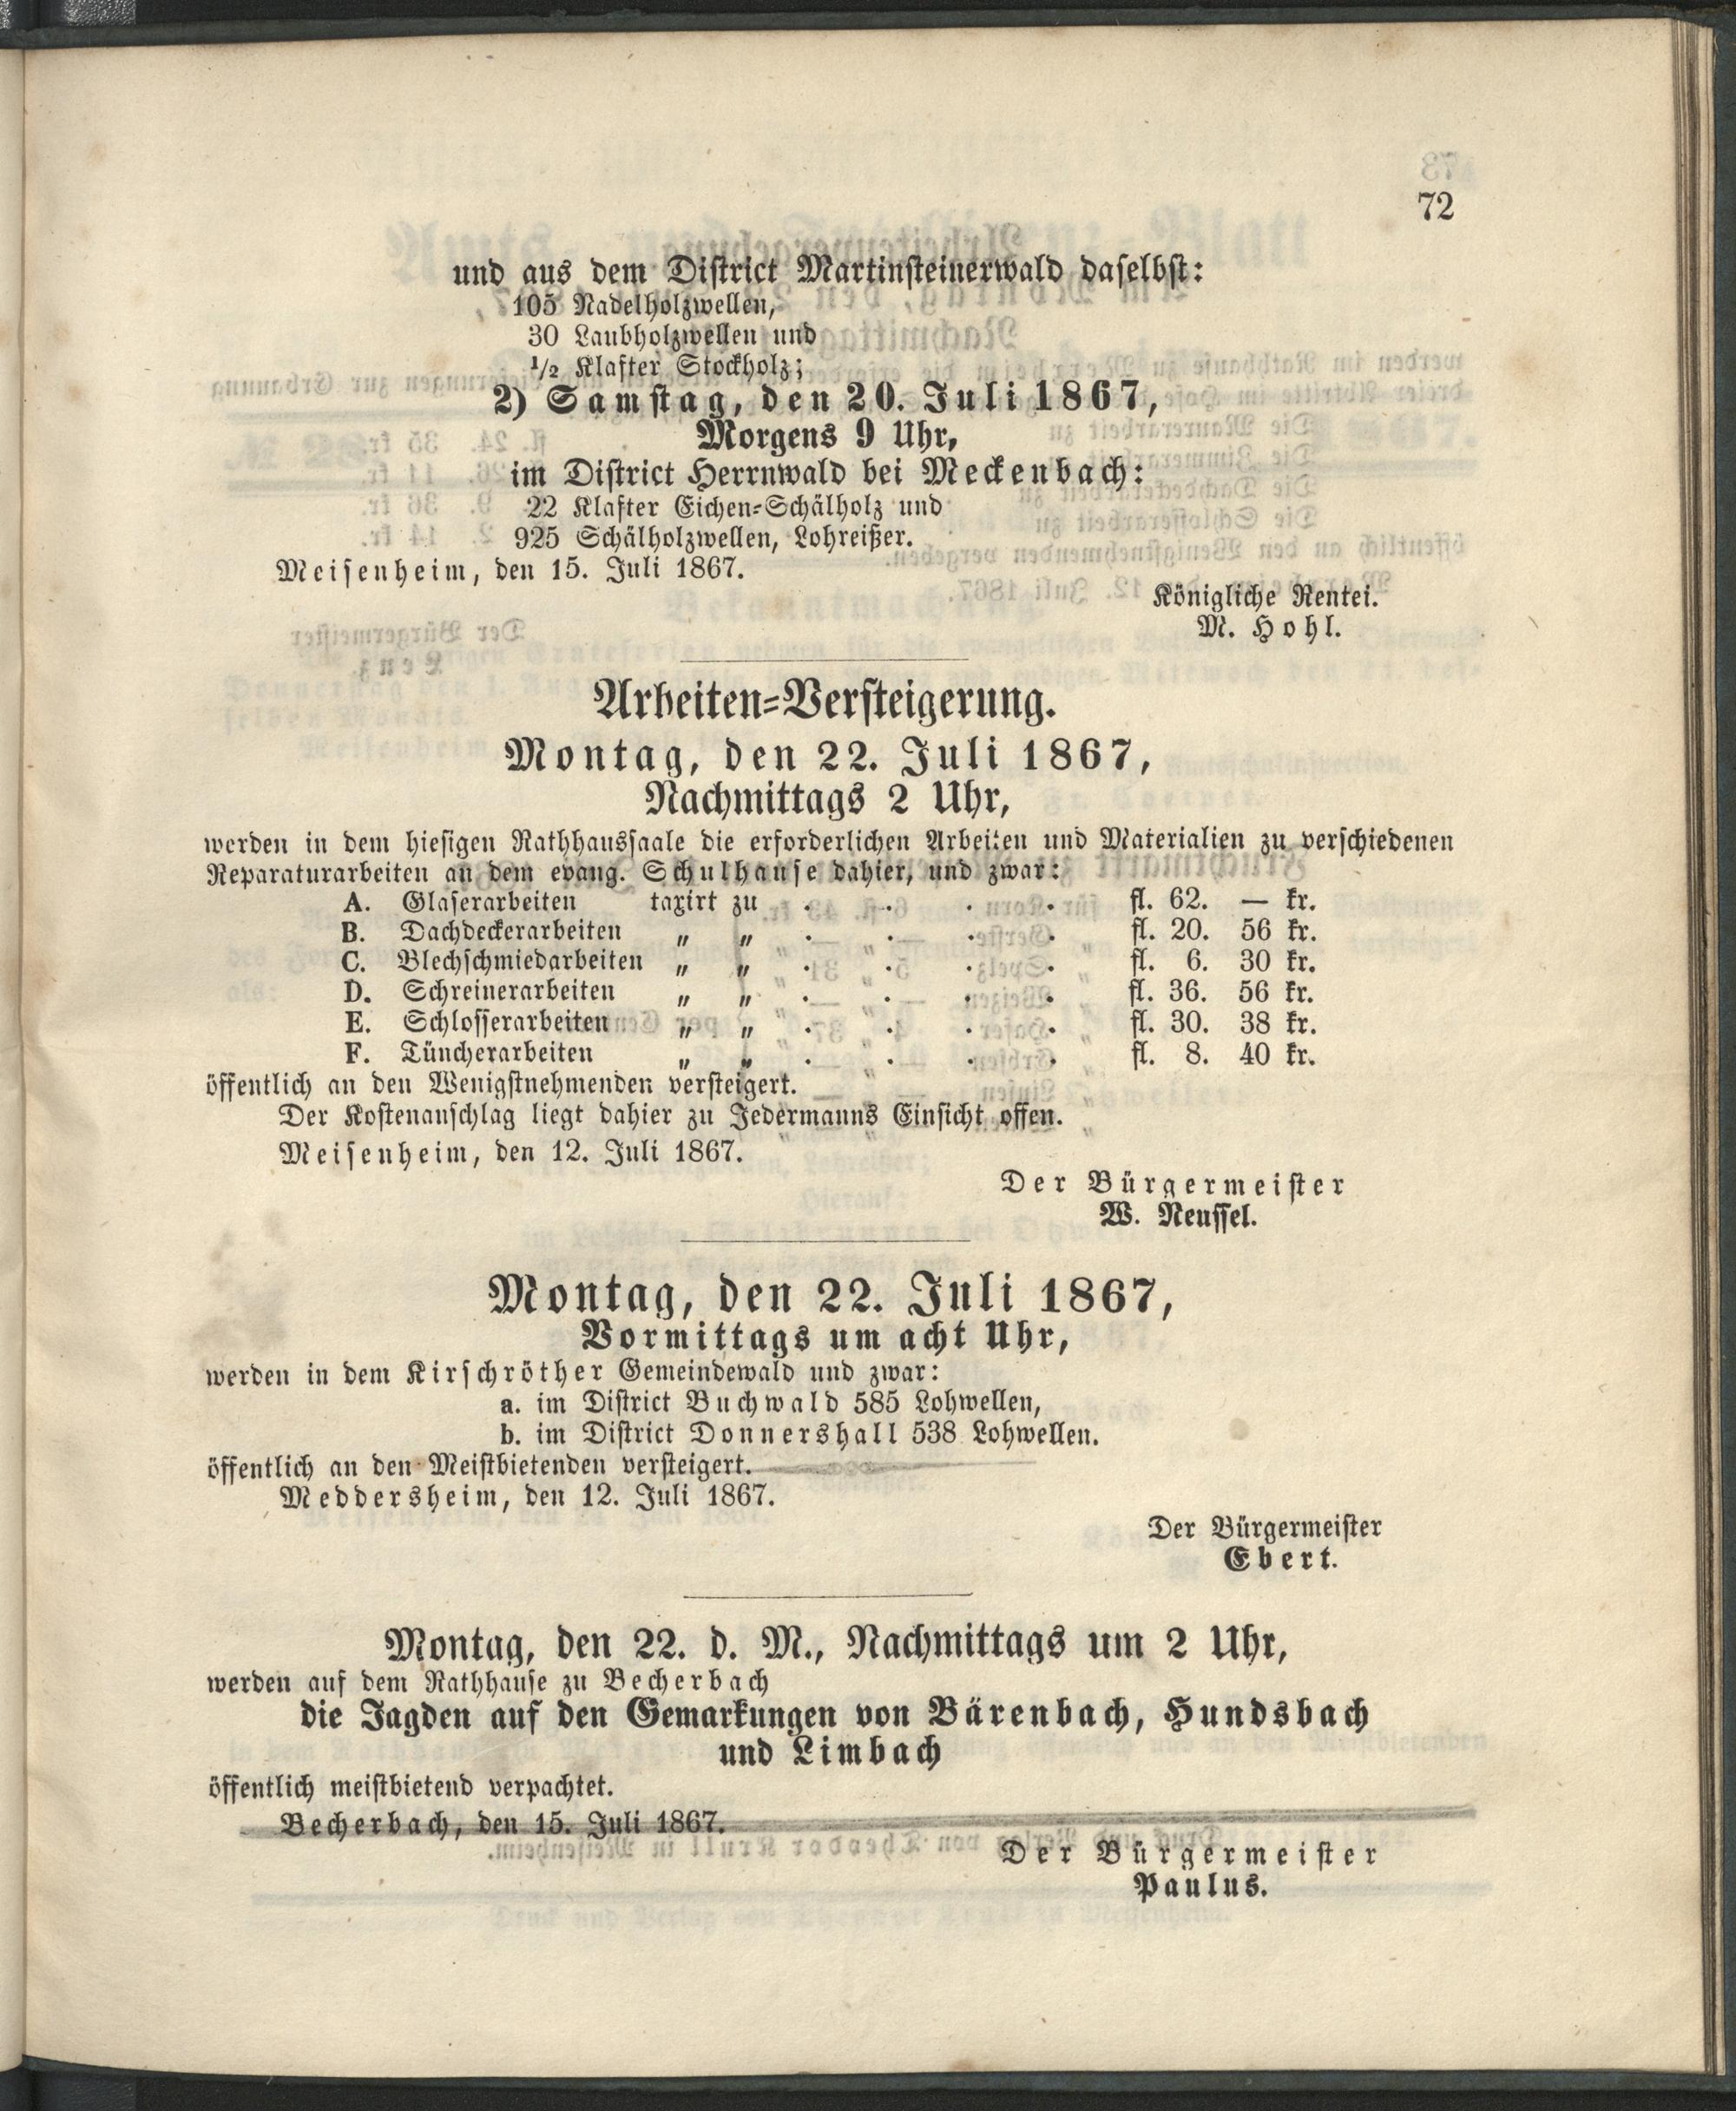 72
und aus dem District Martinsteinerwald daselbst:
105 Nadelholzwellen,
30 Laubholzwellen und
1/2 Klafter Stockholz;
2) Samstag, den 20. Juli 1867,
Morgens 9 Uhr,
im District Herrnwald bei Meckenbach:
22 Klafter Eichen-Schälholz und
925 Schälholzwellen, Lohreißer.
Meisenheim, den 15. Juli 1867.
Königliche Rentei.
M. Hohl.
Arbeiten-Versteigerung.
Montag, den 22. Juli 1867,
Nachmittags 2 Uhr,
werden in dem hiesigen Rathhaussaale die erforderlichen Arbeiten und Materialien zu verschiedenen
Reparaturarbeiten an dem evang. Schulhause dahier, und zwar:
A. Glaserarbeiten taxirt zu . . . . fl. 62. — kr.
B. Dachdeckerarbeiten „ „ . . . . fl. 20. 56 kr.
C. Blechschmiedarbeiten „ „ . . . . fl. 6. 30 kr.
D. Schreinerarbeiten „ „ . . . . fl. 36. 56 kr.
E. Schlosserarbeiten „ „ . . . . fl. 30. 38 kr.
F. Tüncherarbeiten „ „ . . . . fl. 8. 40 kr.
öffentlich an den Wenigstnehmenden versteigert.
Der Kostenanschlag liegt dahier zu Jedermanns Einsicht offen.
Meisenheim, den 12. Juli 1867.
Der Bürgermeister
W. Neussel.
Montag, den 22. Juli 1867,
Vormittags um acht Uhr,
werden in dem Kirschröther Gemeindewald und zwar:
a. im District Buchwald 585 Lohwellen,
b. im District Donnershall 538 Lohwellen.
öffentlich an den Meistbietenden versteigert.
Meddersheim, den 12. Juli 1867.
Der Bürgermeister
Ebert.
Montag, den 22. d. M., Nachmittags um 2 Uhr,
werden auf dem Rathhause zu Becherbach
die Jagden auf den Gemarkungen von Bärenbach, Hundsbach
und Limbach
öffentlich meistbietend verpachtet.
Becherbach, den 15. Juli 1867.
Der Bürgermeister
Paulus.